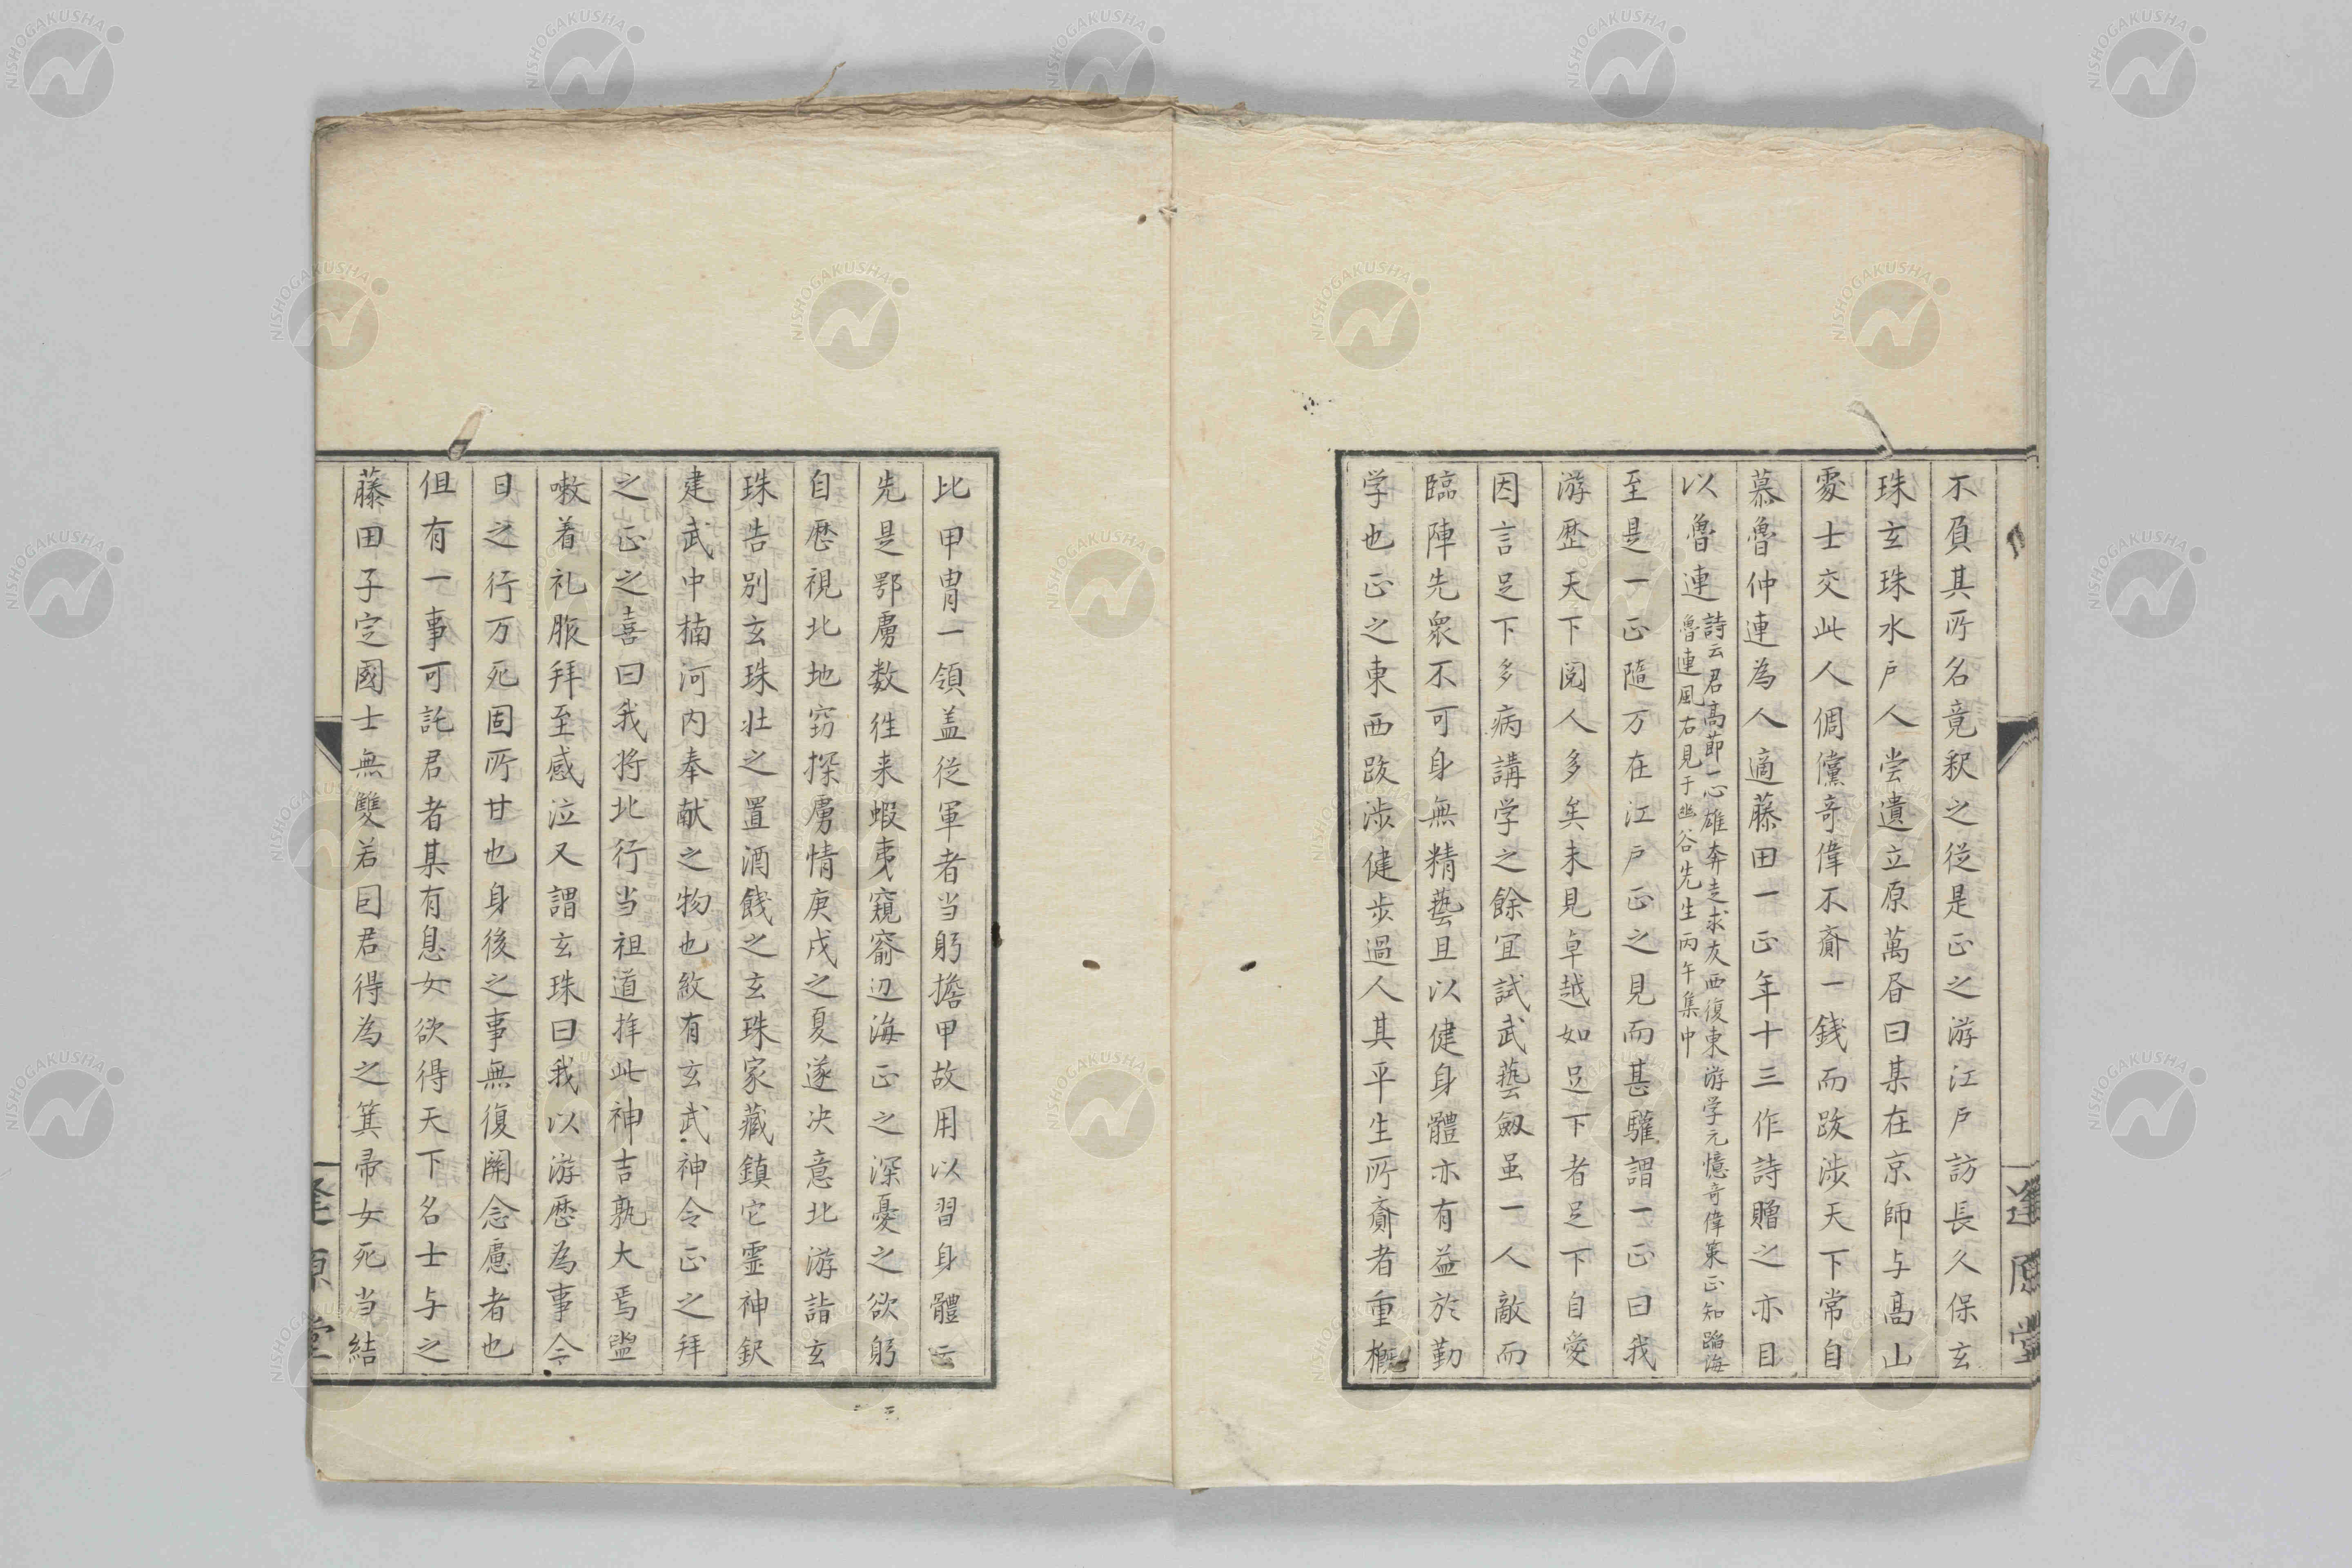 不負其所名竟釈之従是正之游江戸訪長久保玄
珠玄珠水戸人嘗遺立原萬昼曰某在京師与高山
處士交此人倜儻奇偉不齎一銭而跋渉天下常自
慕魯仲連為人適藤田一正年十三作詩贈之亦目
以魯連
詩云君高節一心雄奔走求友西復東游学元憶奇偉策正知蹈海
魯連風右見于幽谷先生丙午集中
至是一正隨万在江戸正之見而甚驩謂一正曰我
游歴天下閲人多矣未見卓越如足下者足下自愛
因言足下多病講学之餘宜試武藝劔虽一人敵而
臨陣先衆不可身無精藝且以健身體亦有益於勤
学也正之東西跋渉健歩過人其平生所齎者重櫪
比甲冑一領盖従軍者当躬擔甲故用以習身體云
先是鄂虜数徃来蝦夷窺窬辺海正之深憂之欲躬
自歴視北地窃探虜情庚戌之夏遂决意北游詣玄
珠告別玄珠壮之置酒餞之玄珠家蔵鎮宅霊神釵
建武中楠河内奉献之物也紋有玄武神令正之拜
之正之喜曰我将北行当祖道拝此神吉孰大焉盥
嗽着礼服拜至感泣又謂玄珠曰我以游歴為事今
日之行万死固所甘也身後之事無復關念慮者也
但有一事可託君者某有息女欲得天下名士与之
藤田子定國士無雙若因君得為之箕帚女死当結
逢原堂
逢原堂
NISHOGAKUSHA